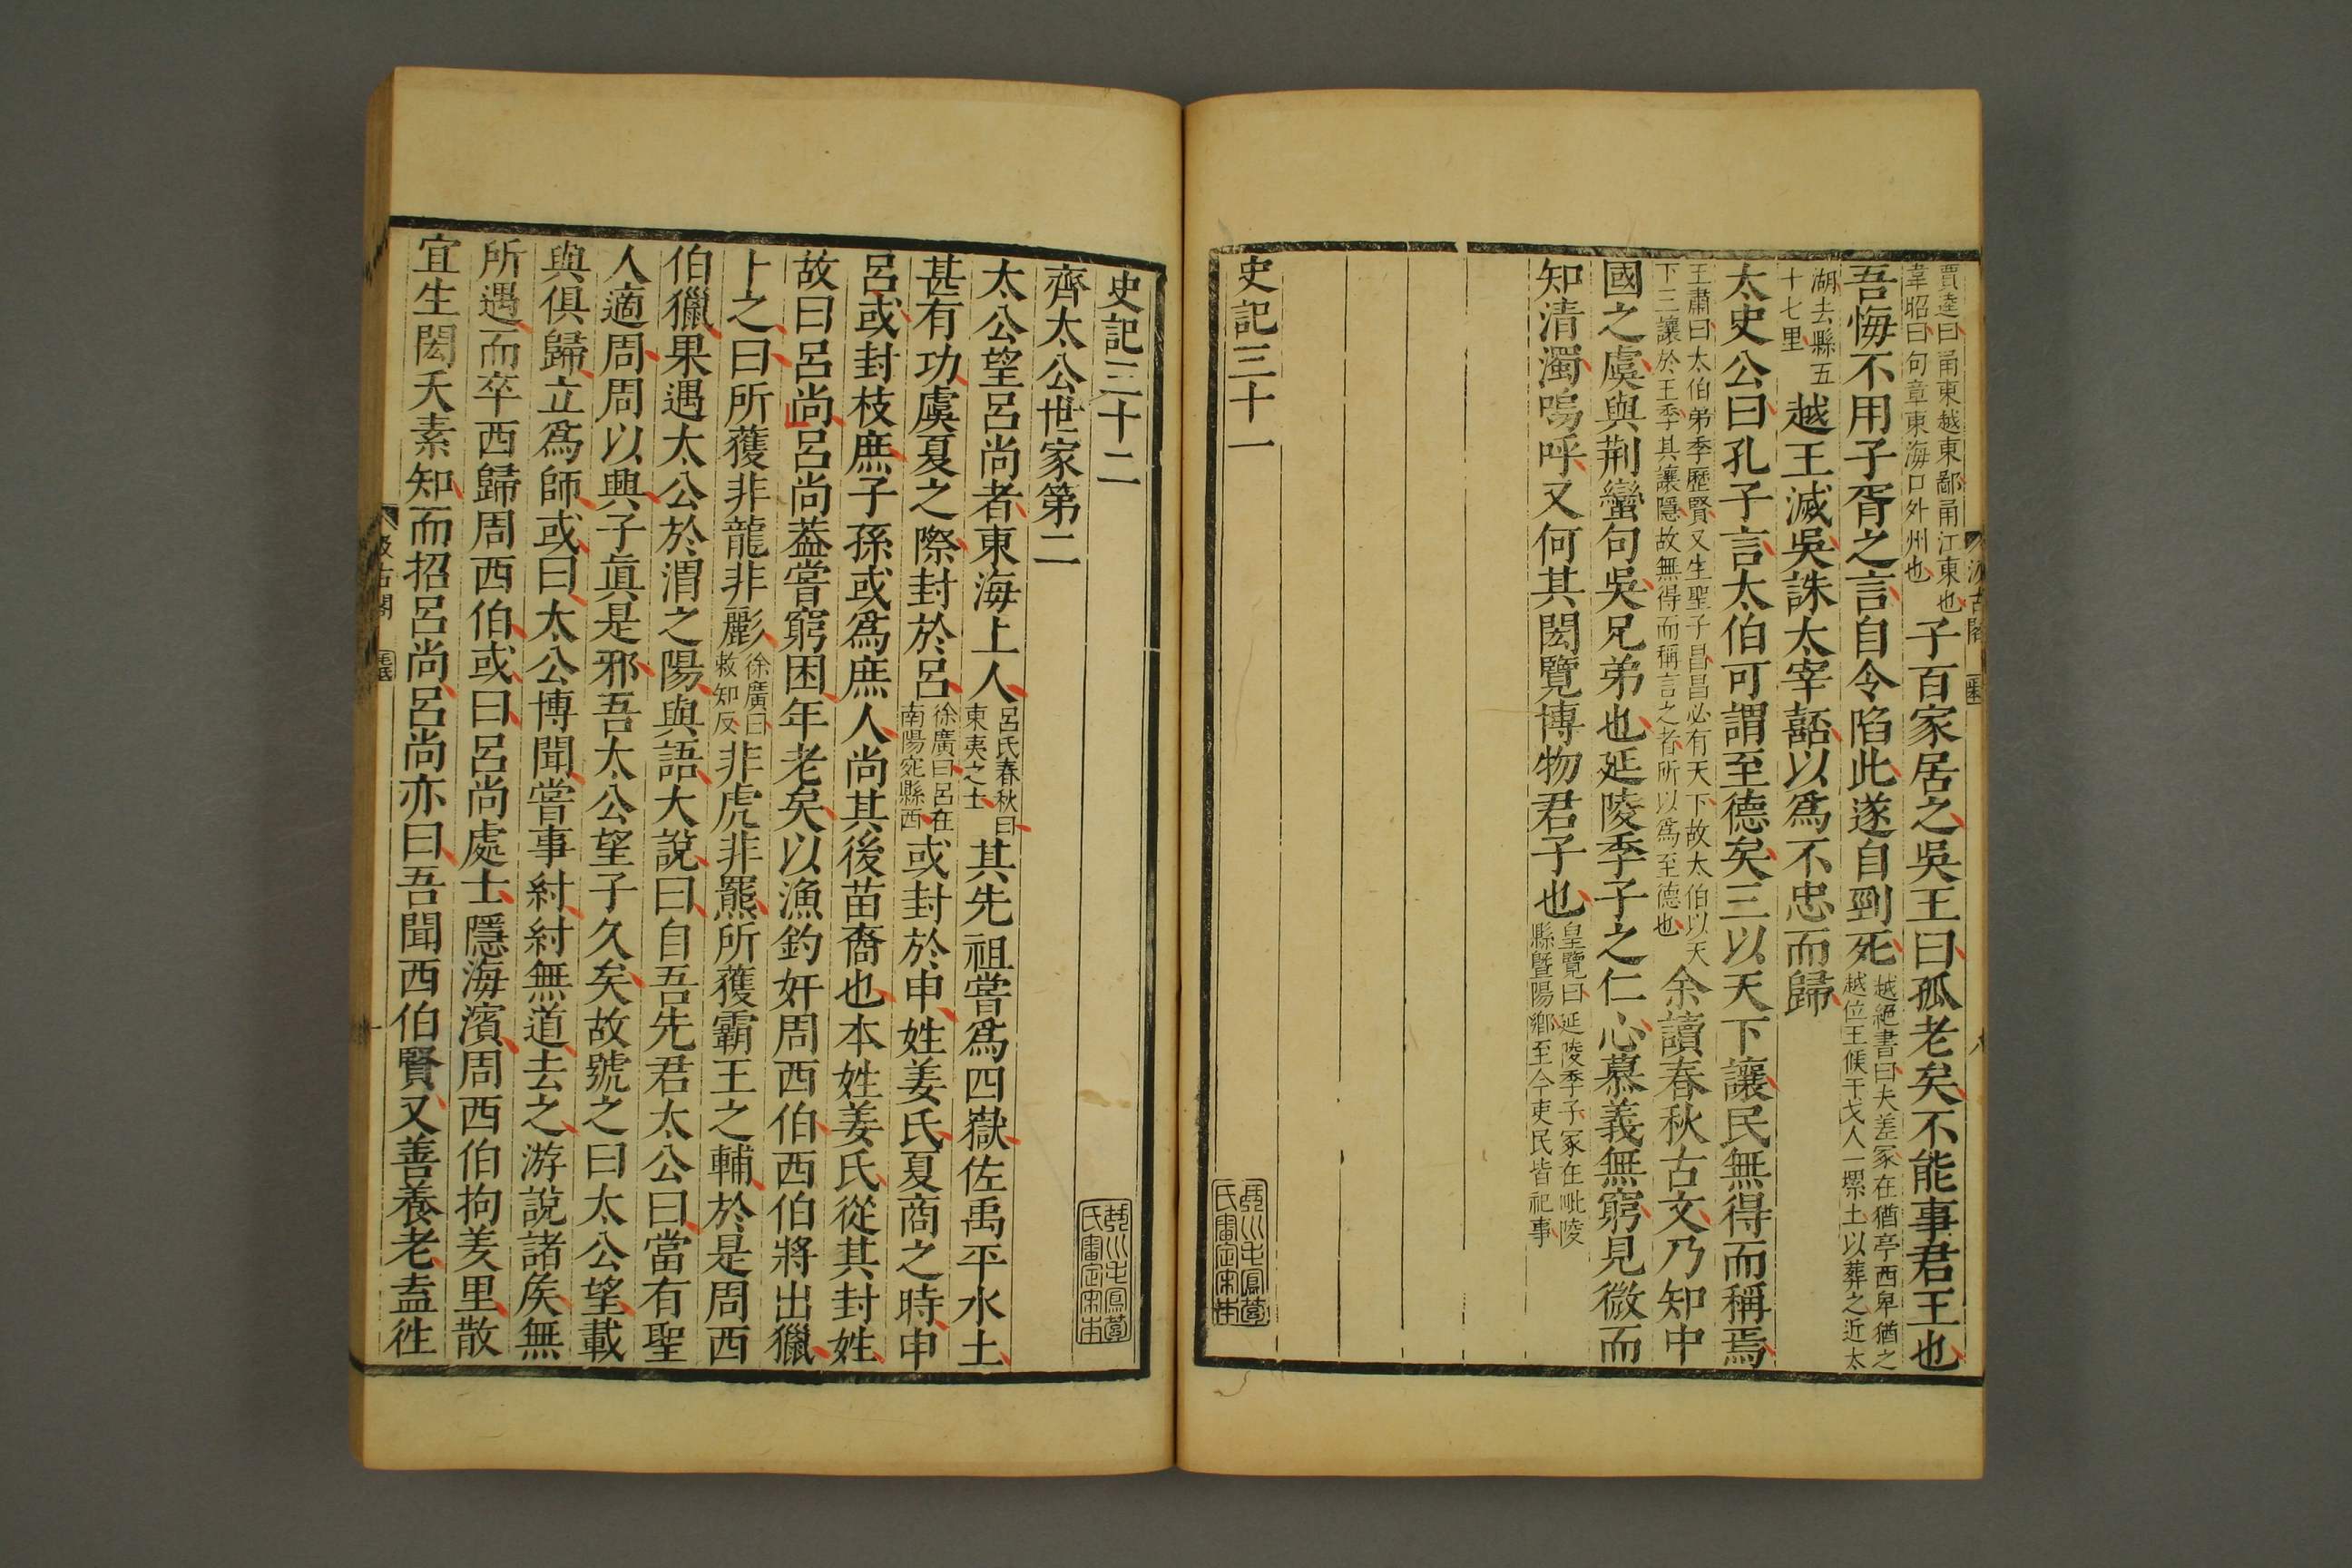 賈逵曰甬東越東鄙甬江東也
韋昭曰句章東海口外州也
子百家居之吳王曰孤老矣不能事君王也
吾悔不用子胥之言自令陷此遂自剄死
越絕書曰夫差冢在猶亭西卑猶之
越位王候干戈人一㙼土以葬之近太
湖去縣五
十七里
越王滅吳誅太宰嚭以爲不忠而歸
太史公曰孔子言太伯可謂至德矣三以天下讓民無得而稱焉
王肅曰太伯弟季歷賢又生聖子昌昌必有天下故太伯以天
下三讓於王季其讓隱故無得而稱言之者所以爲至德也
余讀春秋古文乃知中
國之虞與荆蠻句吳兄弟也延陵季子之仁心慕義無窮見微而
知清濁嗚呼又何其閎覽博物君子也
皇覽曰延陵季子冢在毗陵
縣曁陽鄉至今吏民皆祀事
史記三十一
史記三十二
齊太公世家第二
太公望呂尚者東海上人
呂氏春秋曰
東夷之士
其先祖嘗爲四嶽佐禹平水土
甚有功虞夏之際封於呂
徐廣曰呂在
南陽宛縣西
或封於申姓姜氏夏商之時申
呂或封枝庶子孫或爲庶人尚其後苗裔也本姓姜氏從其封姓
故曰呂尚呂尚蓋嘗窮困年老矣以漁釣奸周西伯西伯將出獵
卜之曰所獲非龍非彲
徐廣曰
敕知反
非虎非羆所獲霸王之輔於是周西
伯獵果遇太公於渭之陽與語大說曰自吾先君太公曰當有聖
人適周周以興子眞是邪吾太公望子久矣故號之曰太公望載
與俱歸立爲師或曰太公博聞嘗事紂紂無道去之游說諸矦無
所遇而卒西歸周西伯或曰呂尚處士隱海濱周西伯拘羑里散
宜生閎夭素知而招呂尚呂尚亦曰吾聞西伯賢又善養老盍徃
汲古閣